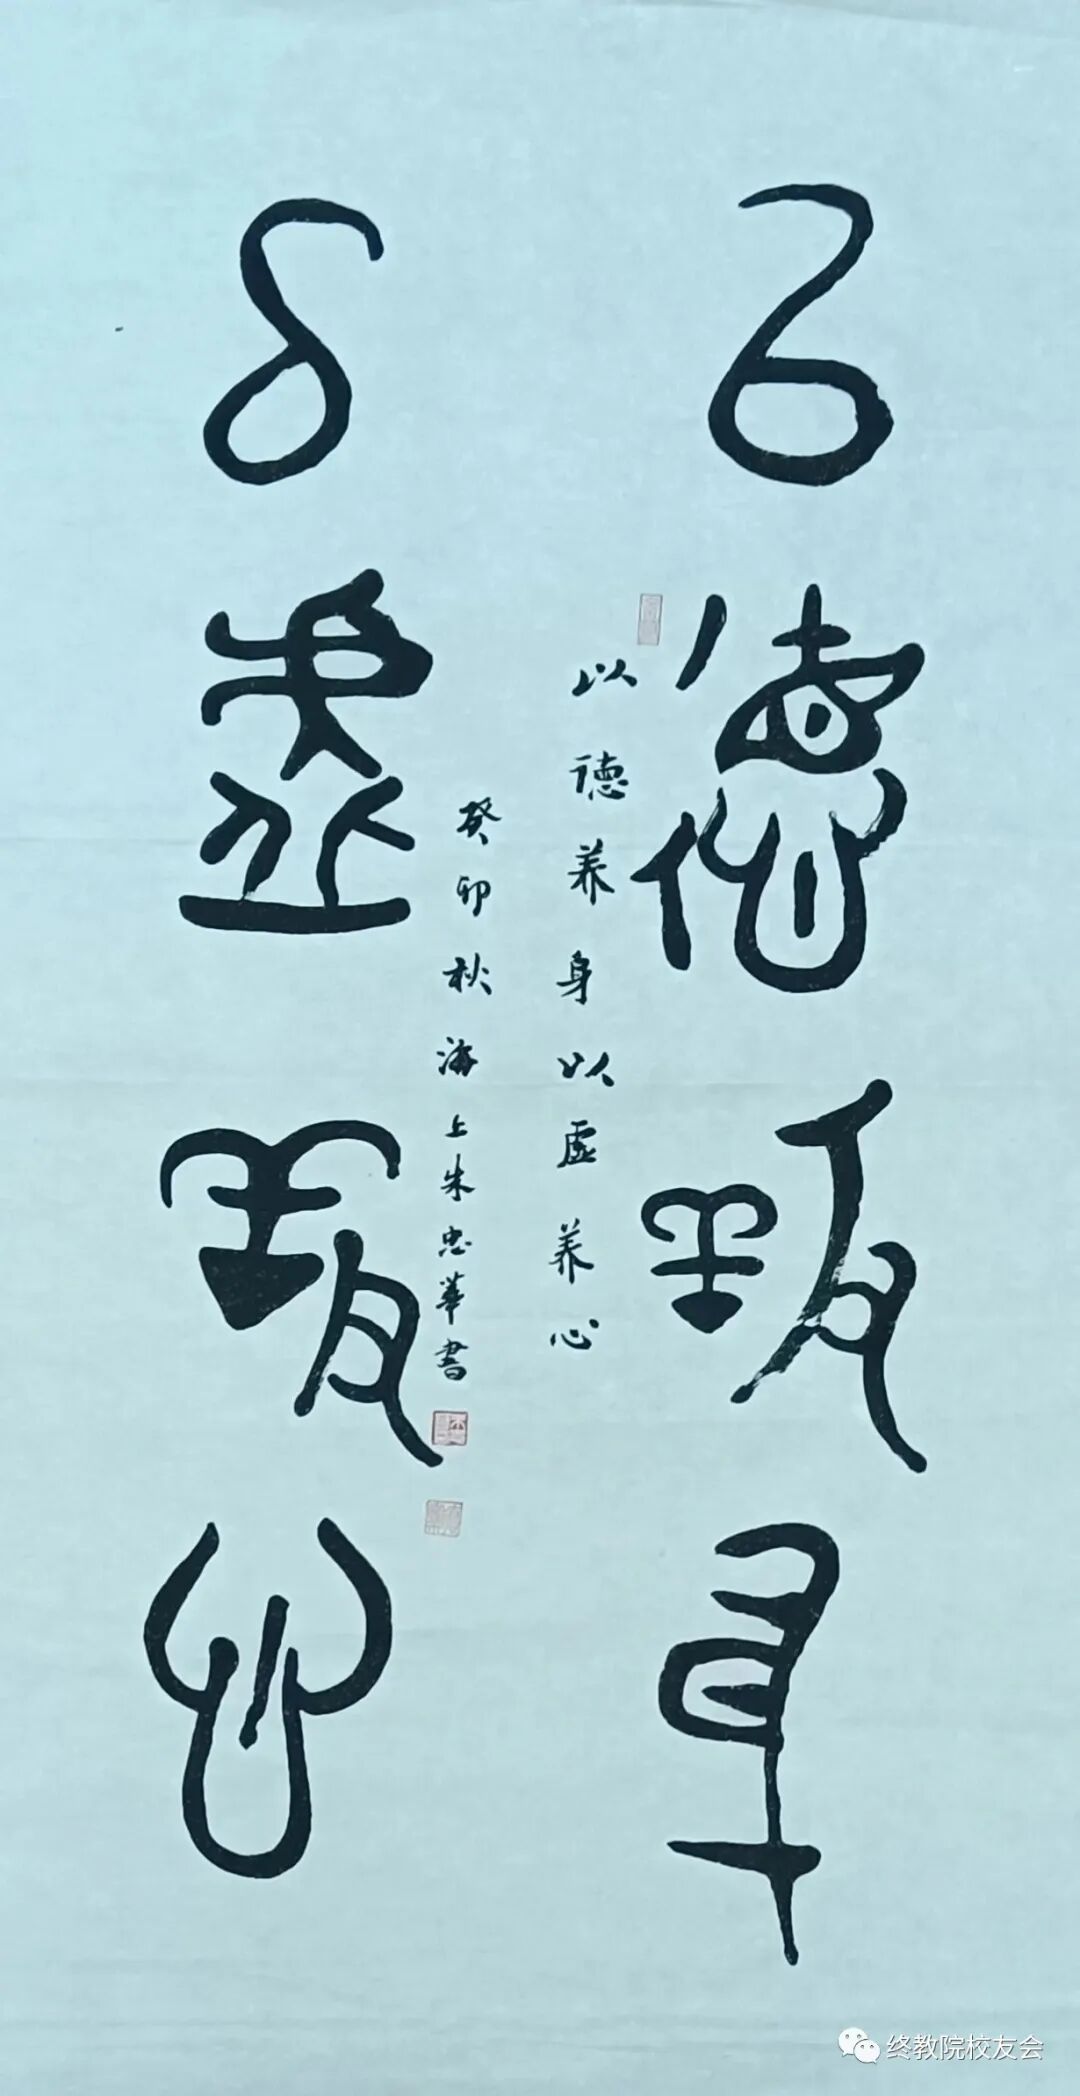 以德养身
以虚养心
以德养身以虚养心
癸卯秋海上朱忠華書
终教院校友会